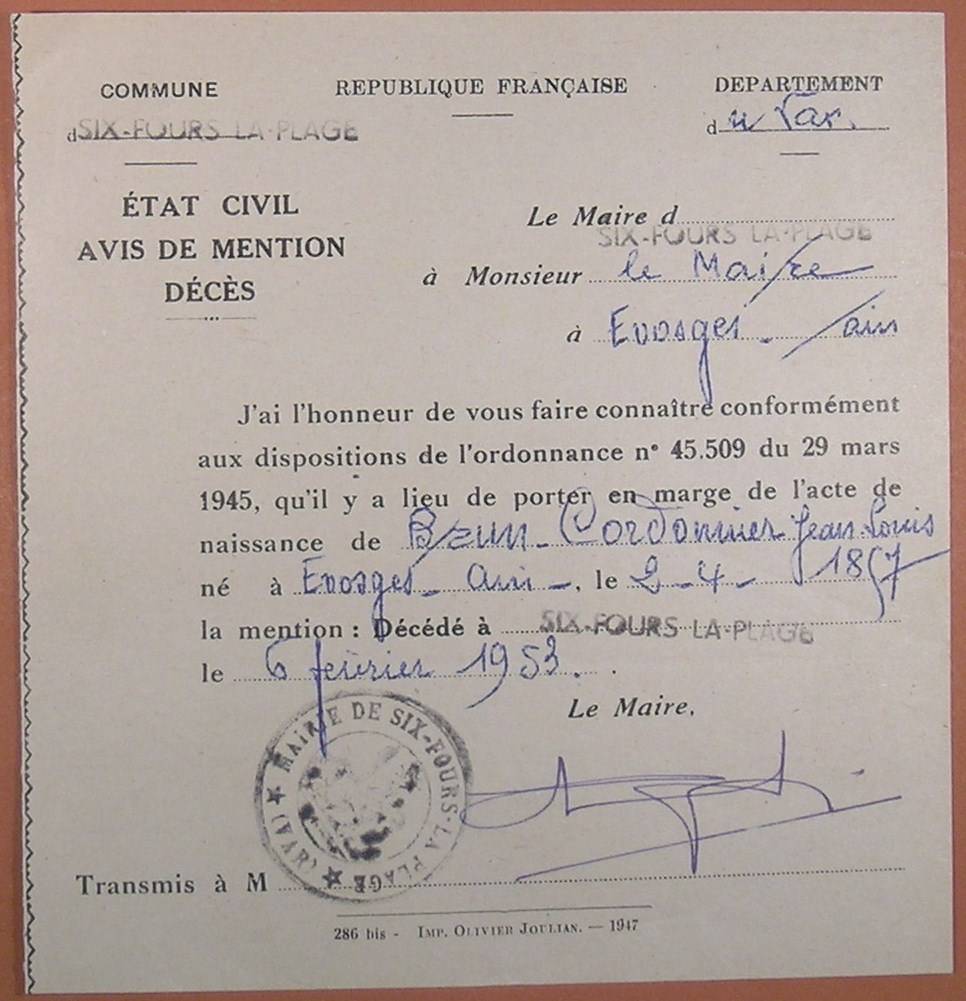 COMMUNE
REPUBLIQUE FRANÇAISE
DEPARTEMENT
d SIX-FOURS LA-PLAGE
d u Var.
ÉTAT CIVIL
AVIS DE MENTION
DÉCÈS
Le Maire d
SIX-FOURS LA-PLAGE
à Monsieur le Maire
à Evosges - / ain
J'ai l'honneur de vous faire connaître conformément
aux dispositions de l'ordonnance n° 45.509 du 29 mars
1945, qu'il y a lieu de porter en marge de l'acte de
naissance de Cordonnier Jean-Louis
né à Evosges - Ain -, le 2-4- 1857
la mention : Décédé à SIX-FOURS LA-PLAGE
le 6 février 1953.
Le Maire,
MAIRIE DE SIX-FOURS-LA PLAGE ★ (VAR) ★
Transmis à M
286 bis - IMP. OLIVIER JOULIAN. — 1947